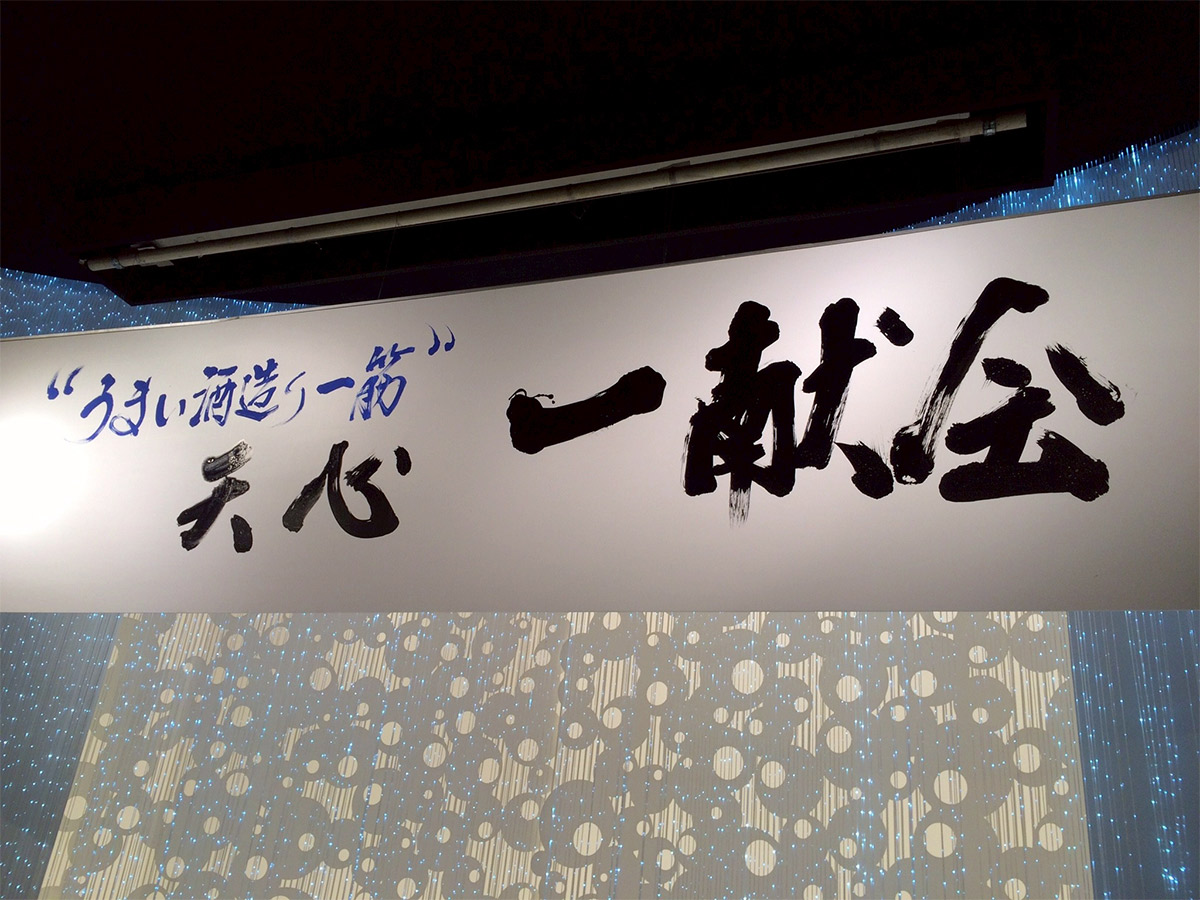 “うまい酒造り一筋”
天心
一献会